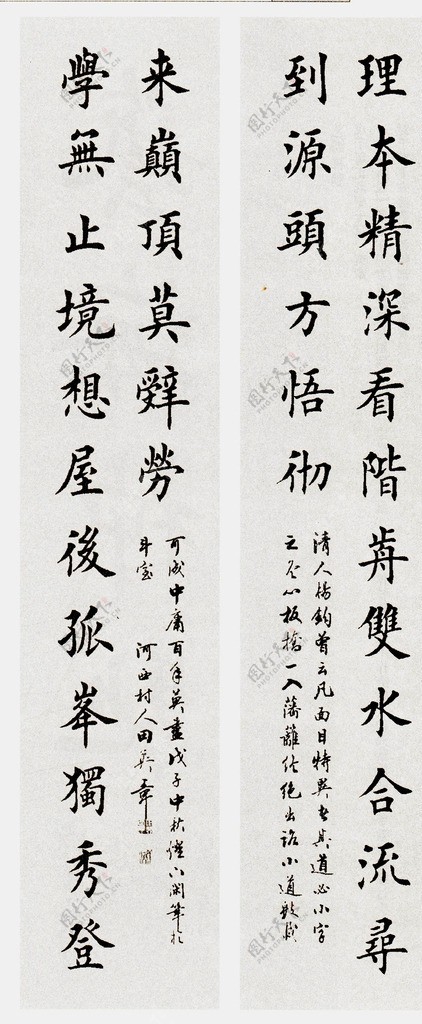 理本精深看階歬雙水合流尋
到源頭方悟彻
清人楊鈞曾云凡面目特異者其道必小字
之 心板橋一入藩離 絕出 小道
學無止境想屋後孤峯獨秀登
来巔頂莫辭勞
可成中庸百年莫盡戊子中秋燈下閑筆於
斗室 河西村人田 章
图行天下
PHOTOPHOTO.CN